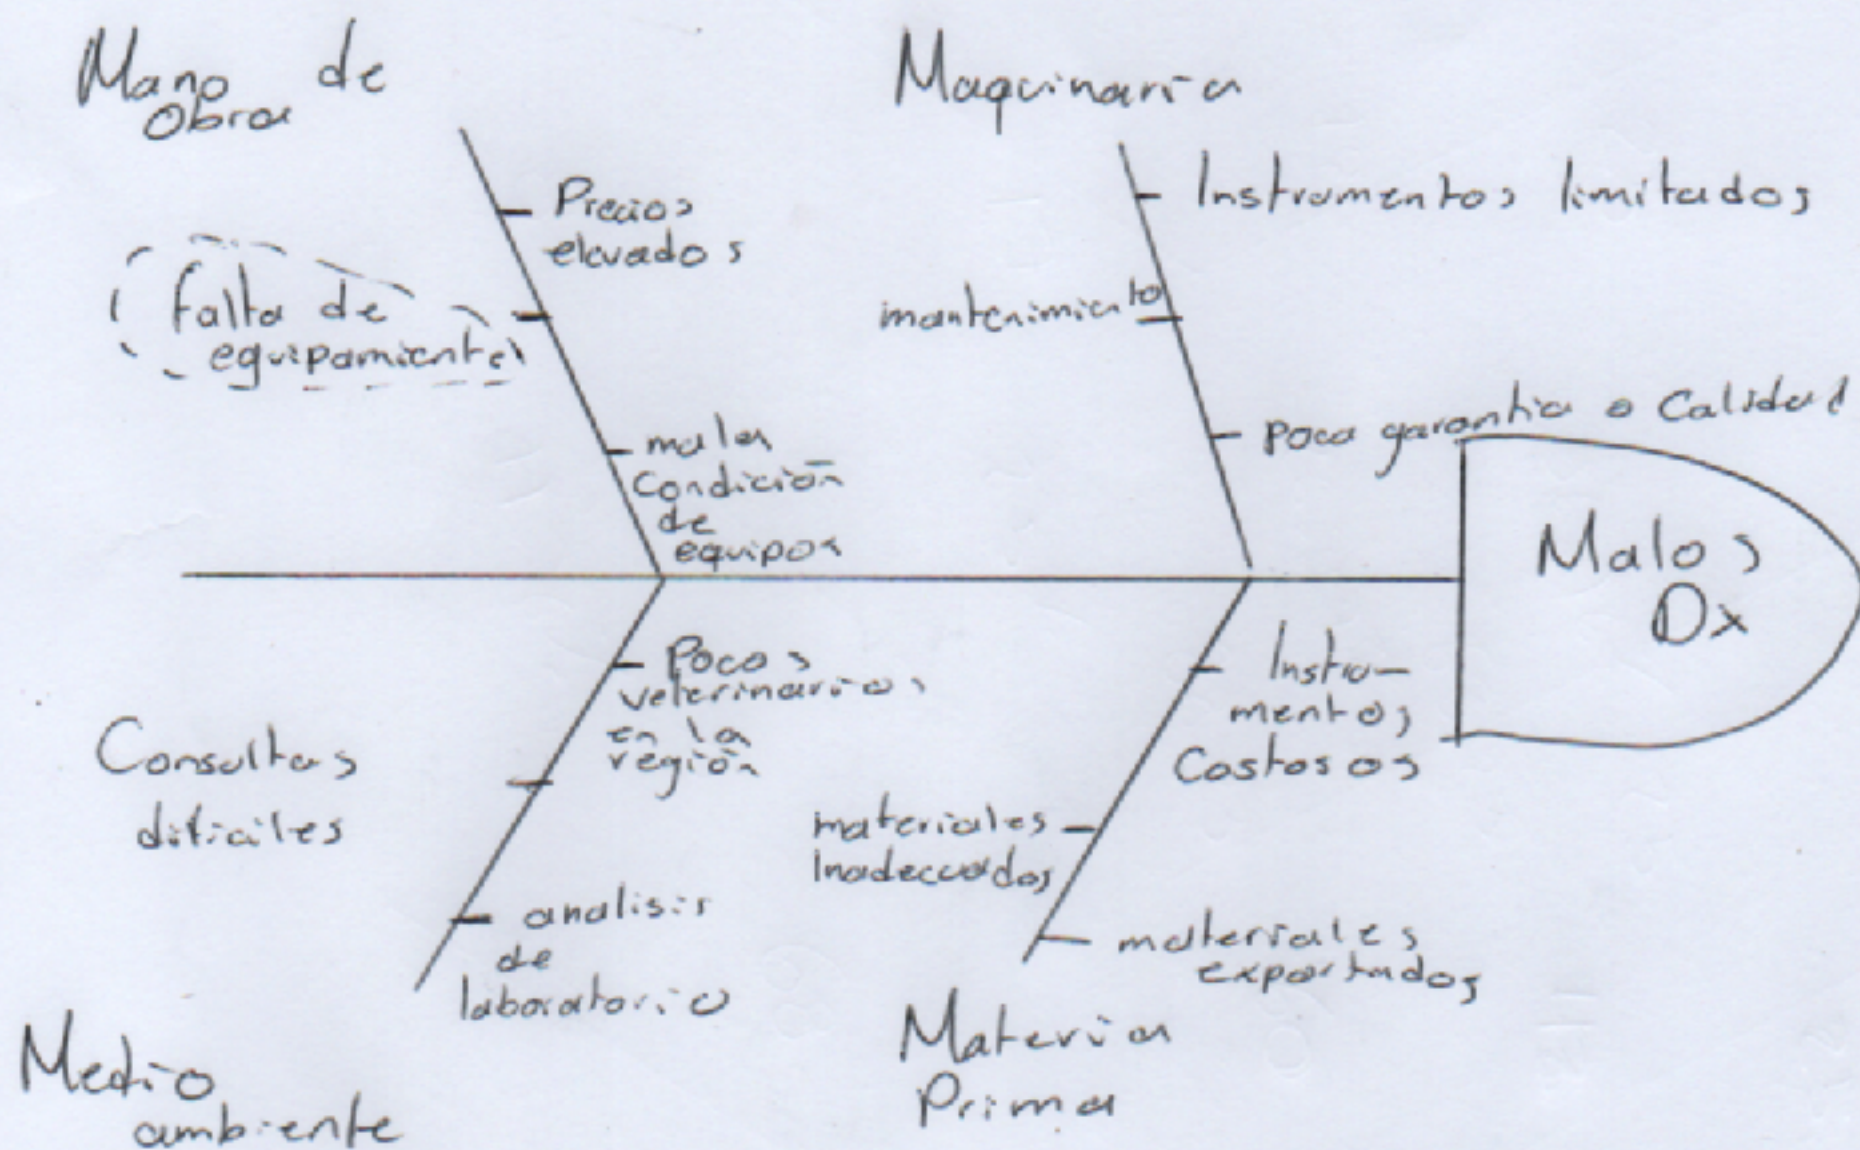 Mano de
Obra
Precios
elevados
falta de
equipamiento
mala
Condición
de
equipos
Maquinaria
Instrumentos limitados
mantenimiento
Poca garantia o Calidad
Malos
Dx
Pocos
veterinarios
en la
región
Consultas
dificiles
analisis
de
laboratorio
Medio
ambiente
Instru-
mentos
Costosos
materiales
Inadecuados
materiales
exportados
Materia
Prima